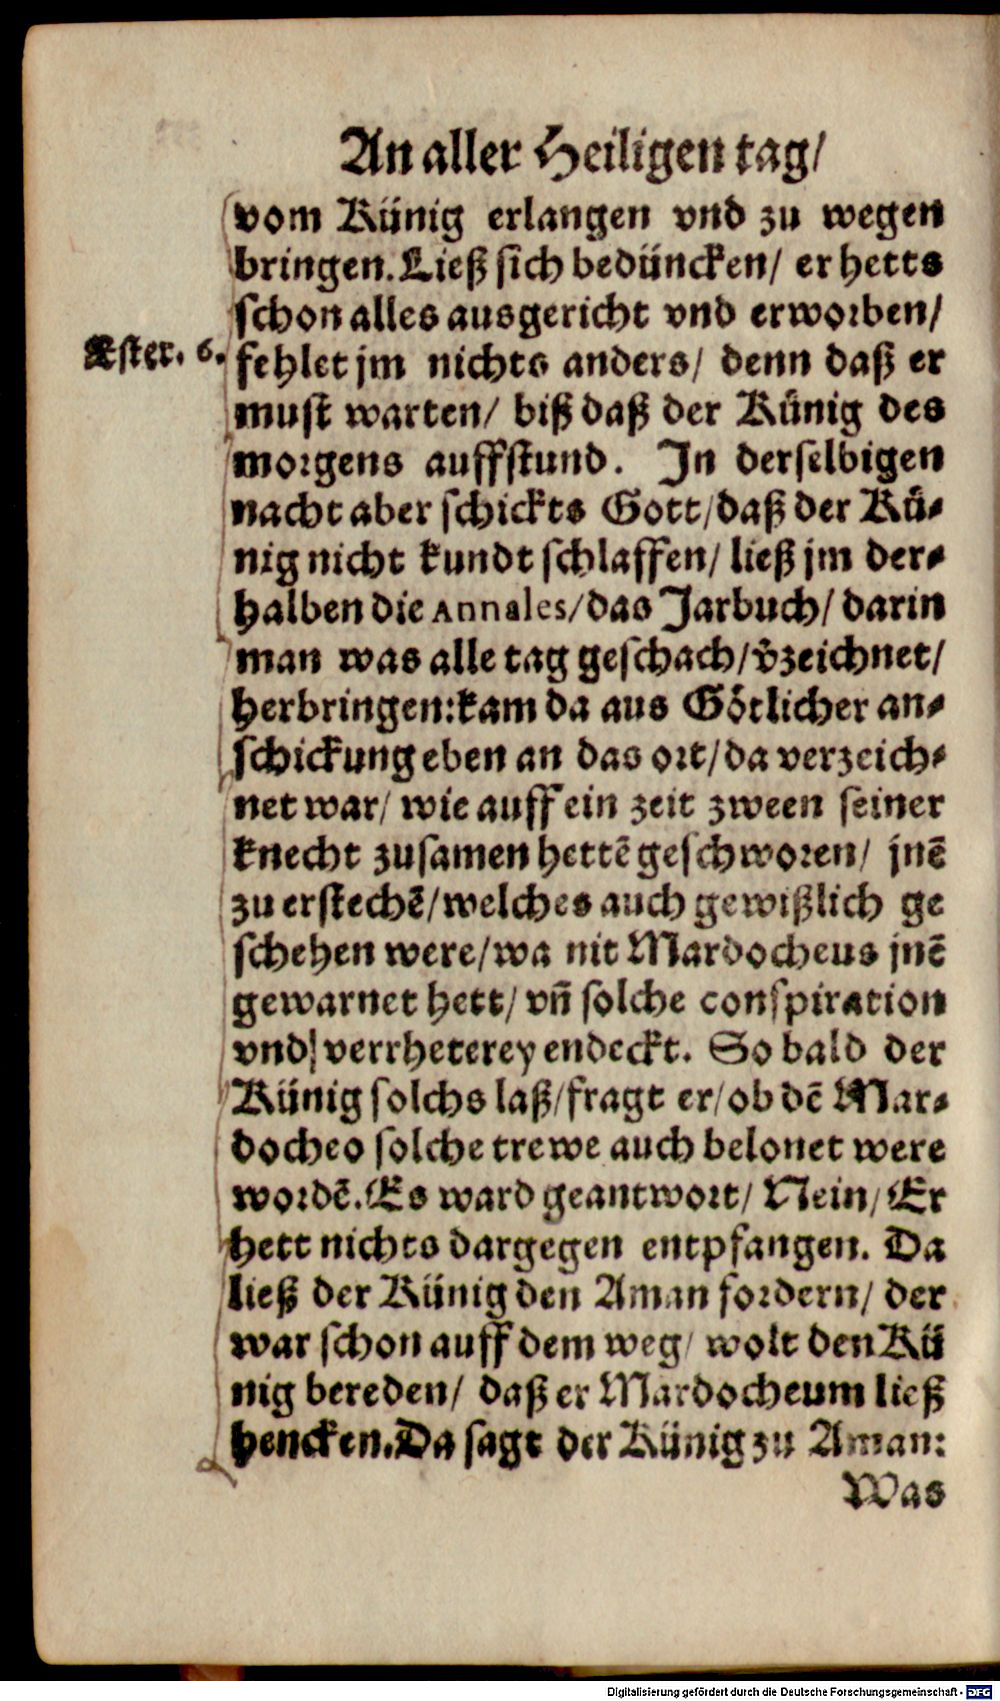 An aller Heiligen tag/
vom Künig erlangen vnd zu wegen
bringen. Ließ sich bedüncken/ er hetts
schon alles ausgericht vnd erworben/
Ester. 6.
fehlet jm nichts anders/ denn daß er
must warten/ biß daß der Künig des
morgens auffstund. In derselbigen
nacht aber schickts Gott/ daß der Kü-
nig nicht kundt schlaffen/ ließ jm der-
halben die Annales/ das Jarbuch/ darin
man was alle tag geschach/ v̄zeichnet/
herbringen: kam da aus Götlicher an-
schickung eben an das ort/ da verzeich-
net war/ wie auff ein zeit zween seiner
knecht zusamen hettē geschworen/ jnē
zu erstechē/ welches auch gewißlich ge
schehen were/ wa nit Mardocheus jnē
gewarnet hett/ vn̄ solche conspiration
vnd verrheterey endeckt. So bald der
Künig solchs laß/ fragt er/ ob dē Mar-
docheo solche trewe auch belonet were
wordē. Es ward geantwort/ Nein/ Er
hett nichts dargegen entpfangen. Da
ließ der Künig den Aman fordern/ der
war schon auff dem weg/ wolt den Kü
nig bereden/ daß er Mardocheum ließ
hencken. Da sagt der Künig zu Aman:
Was
Digitalisierung gefördert durch die Deutsche Forschungsgemeinschaft - DFG